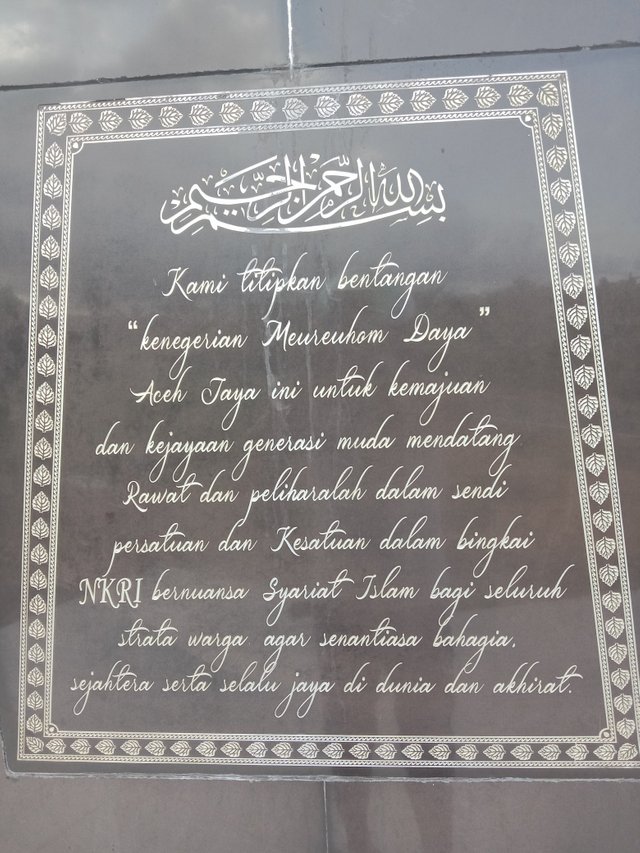 بسم الله الرحمن الرحيم
Kami titipkan bentangan
“kenegerian Meureuhom Daya”
Aceh Jaya ini untuk kemajuan
dan kejayaan generasi muda mendatang
Rawat dan peliharalah dalam sendi
persatuan dan Kesatuan dalam bingkai
NKRI bernuansa Syariat Islam bagi seluruh
strata warga agar senantiasa bahagia,
sejahtera serta selalu jaya di dunia dan akhirat.